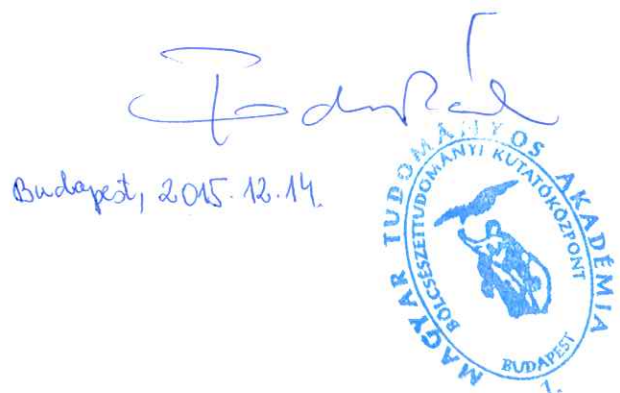 Fodor Pál
Budapest, 2015. 12. 14.
MAGYAR TUDOMÁNYOS AKADÉMIA
BÖLCSÉSZETTUDOMÁNYI KUTATÓKÖZPONT
BUDAPEST
1.